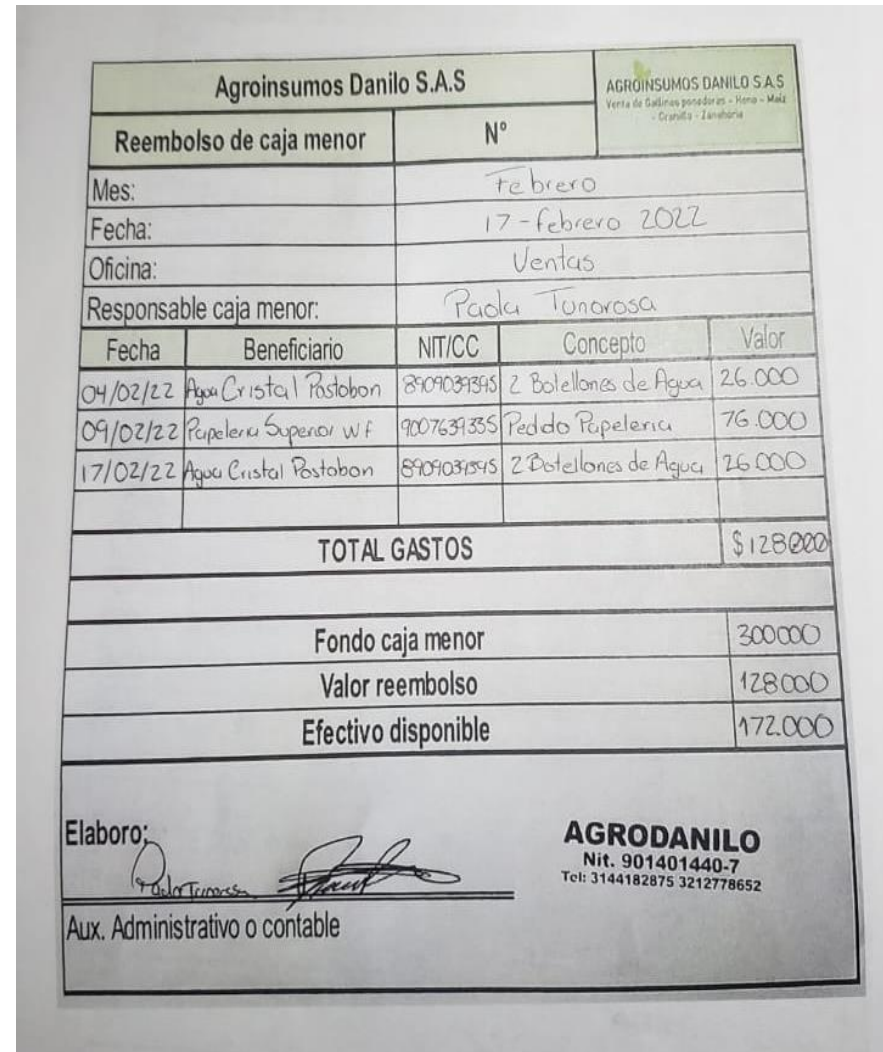 Agroinsumos Danilo S.A.S
AGROINSUMOS DANILO S.A.S
Venta de Gallinas ponedoras - Heno - Maíz
- Cranilla - Zanahoria
Reembolso de caja menor N°
Mes: Febrero
Fecha: 17-febrero 2022
Oficina: Ventas
Responsable caja menor: Paola Tunorosa
Fecha Beneficiario NIT/CC Concepto Valor
04/02/22 Agua Cristal Postobon 8909039395 2 Botellones de Agua 26.000
09/02/22 Papeleria Superior WF 9007639335 Peddo Papeleria 76.000
17/02/22 Agua Cristal Postobon 2 Botellones de Agua 26.000
TOTAL GASTOS $128000
Fondo caja menor 300000
Valor reembolso 128000
Efectivo disponible 172.000
Elaboro:
AGRODANILO
Nit. 901401440-7
Tel: 3144182875 3212778652
Aux. Administrativo o contable